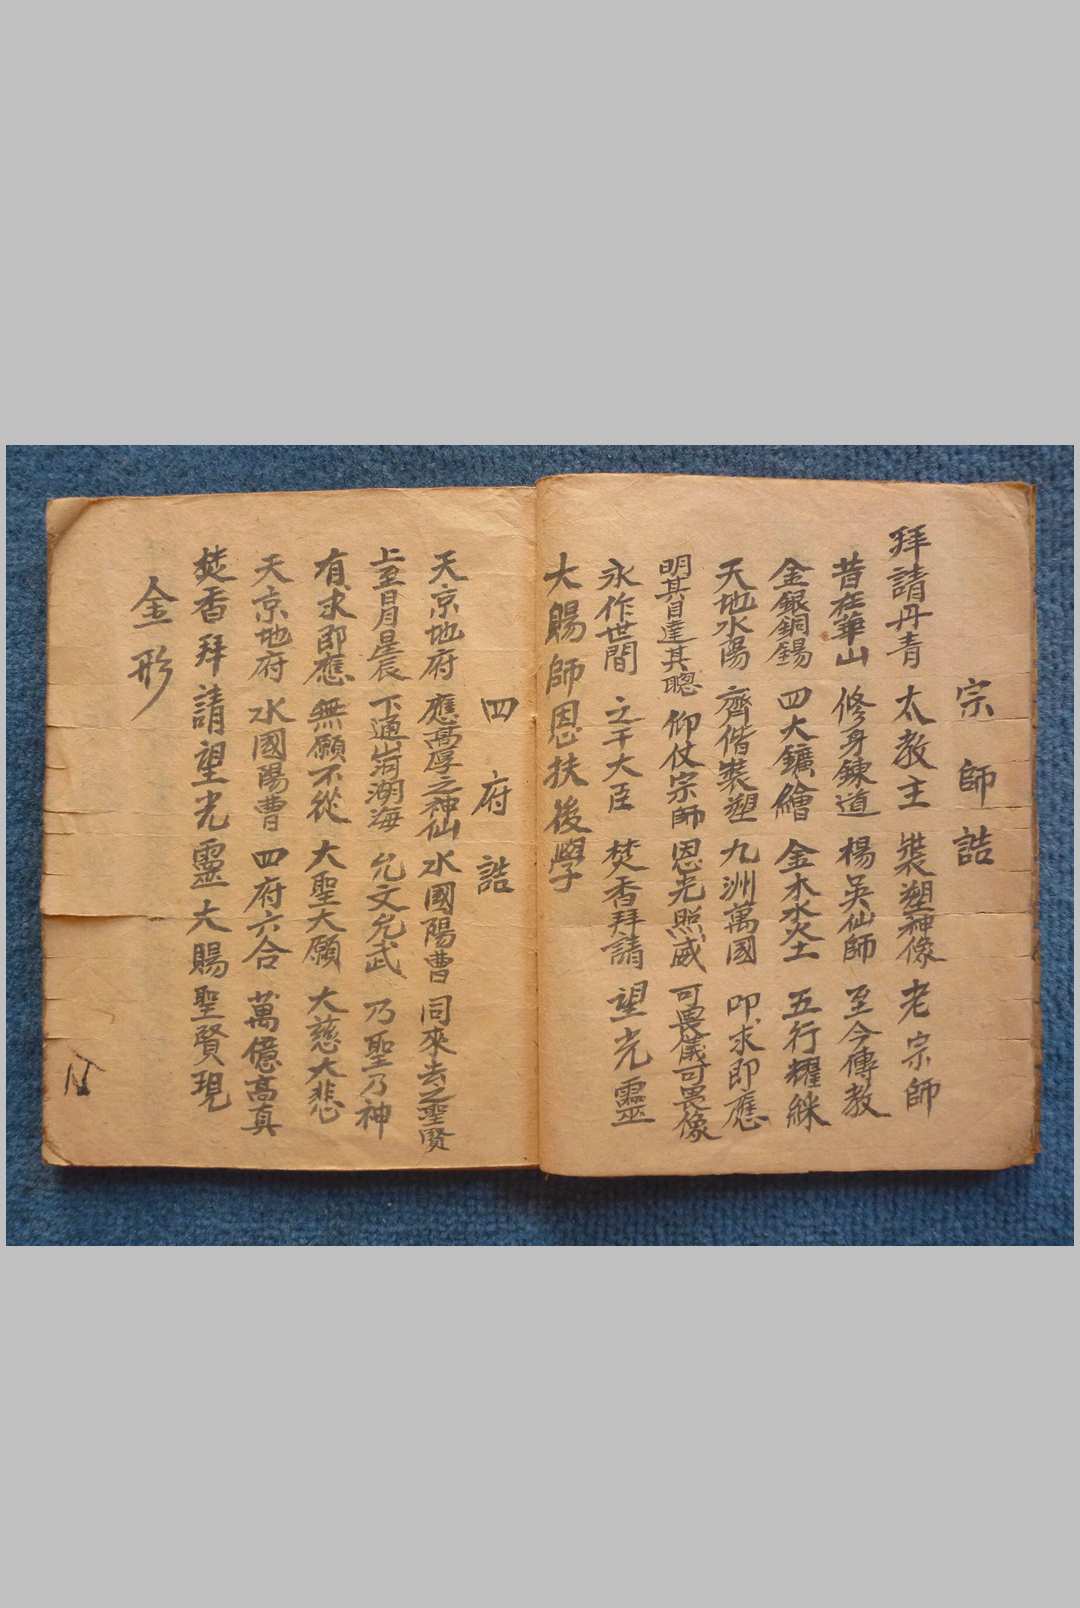 宗師誥
拜請丹青 太教主 裝塑神像 老宗師
昔在華山 修身鍊道 楊吳仙師 至今傳教
金銀銅錫 四大鑛繪 金木水火土 五行耀綵
天地水陽 齊偕裝塑 九洲萬國 叩求即應
明其目達其聰 仰仗宗師 恩光照威 可畏儀可畏像
永作世間 之干大臣 焚香拜請 望光靈
大賜師恩扶後學
四府誥
天京地府 應高厚之神仙 水國陽曹 同來去之聖賢
上至日月星辰 下通湖海 允文允武 乃聖乃神
有求即應 無願不從 大聖大願 大慈大悲
天京地府 水國陽曹 四府六合 萬億高真
焚香拜請望光靈大賜聖賢現
金形